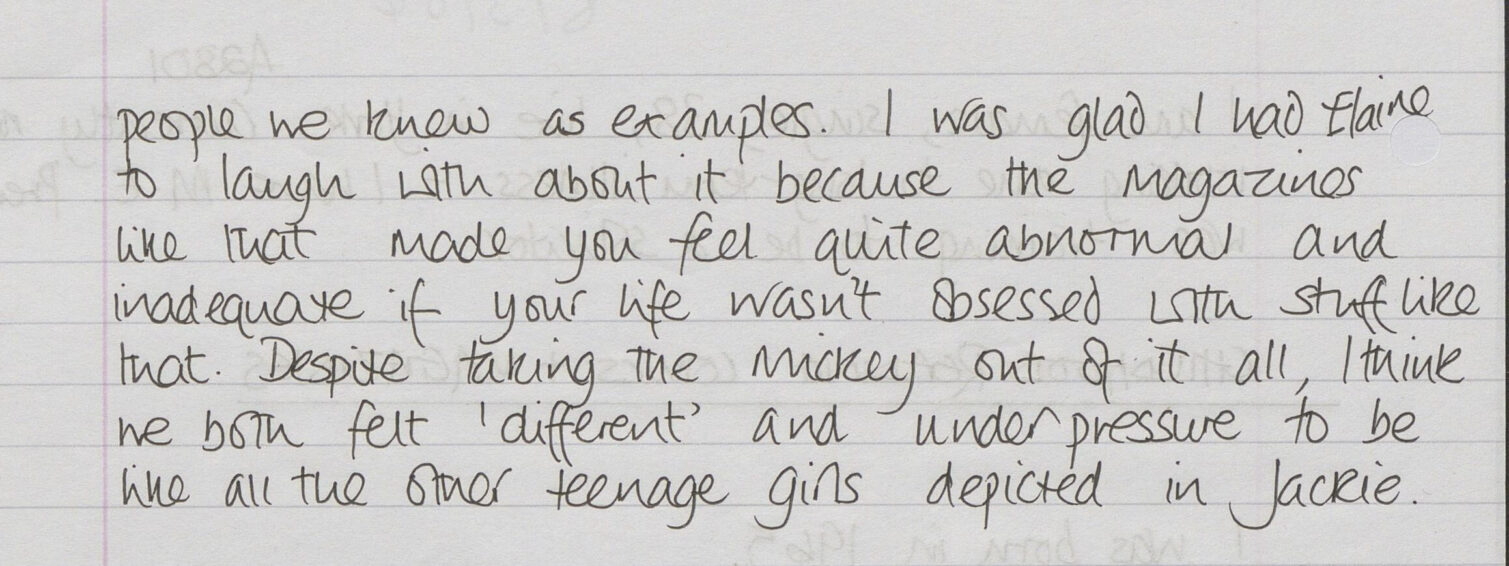 people we knew as examples. I was glad I had Elaine
to laugh with about it because the magazines
like that made you feel quite abnormal and
inadequate if your life wasn't obsessed with stuff like
that. Despite taking the mickey out of it all, I think
we both felt 'different' and under pressure to be
like all the other teenage girls depicted in Jackie.